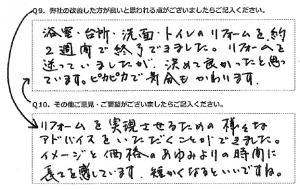 Q9. 弊社の改善した方が良いと思われる点がございましたらご記入ください。
浴室・台所・洗面・トイレのリフォームを約
2週間で終了できました。リフォームを
迷っていましたが、決めて良かったと思っ
ています。ピカピカで気分もかわります。
Q10. その他ご意見・ご要望がございましたらご記入ください。
リフォームを実現させるための様々な
アドバイスをいただくことができました。
イメージと価格のあゆみよりの時間に
長さを感じています。短かくなるといいですね。